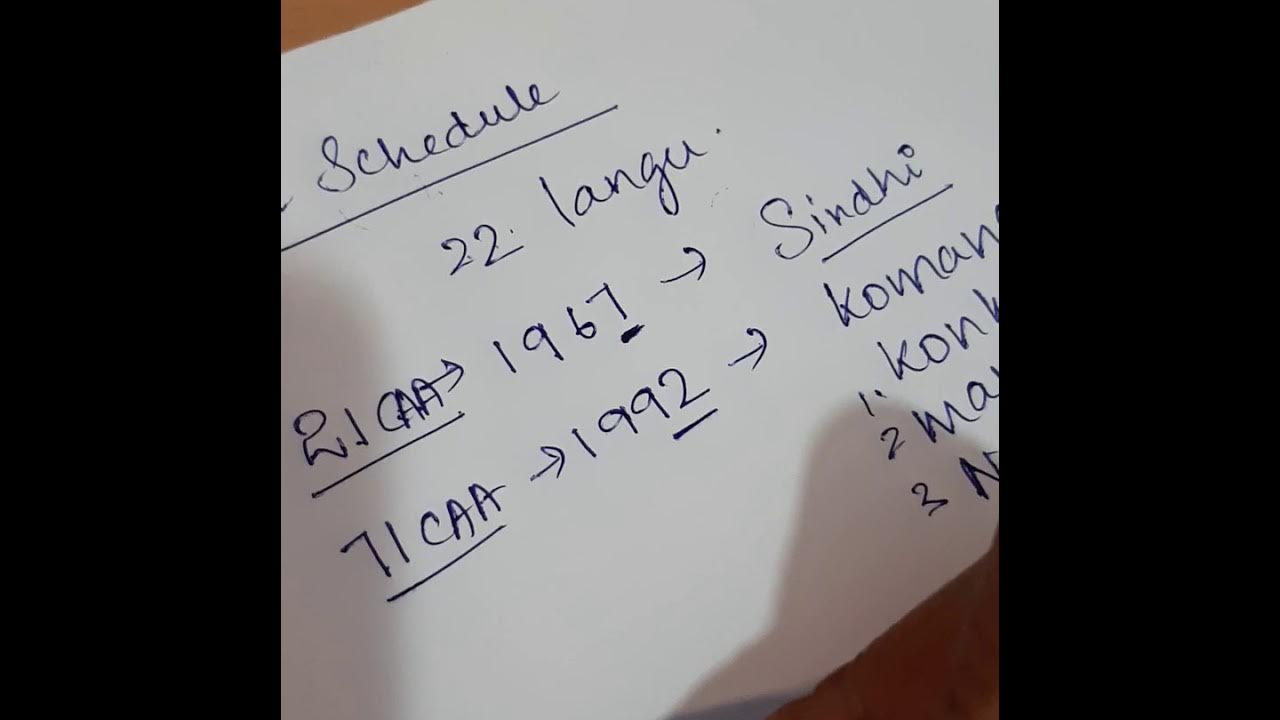 Schedule
22 langu.
21 CAA → 1967 → Sindhi
71 CAA → 1992 → Koman
1. Konk
2 Ma
3 N